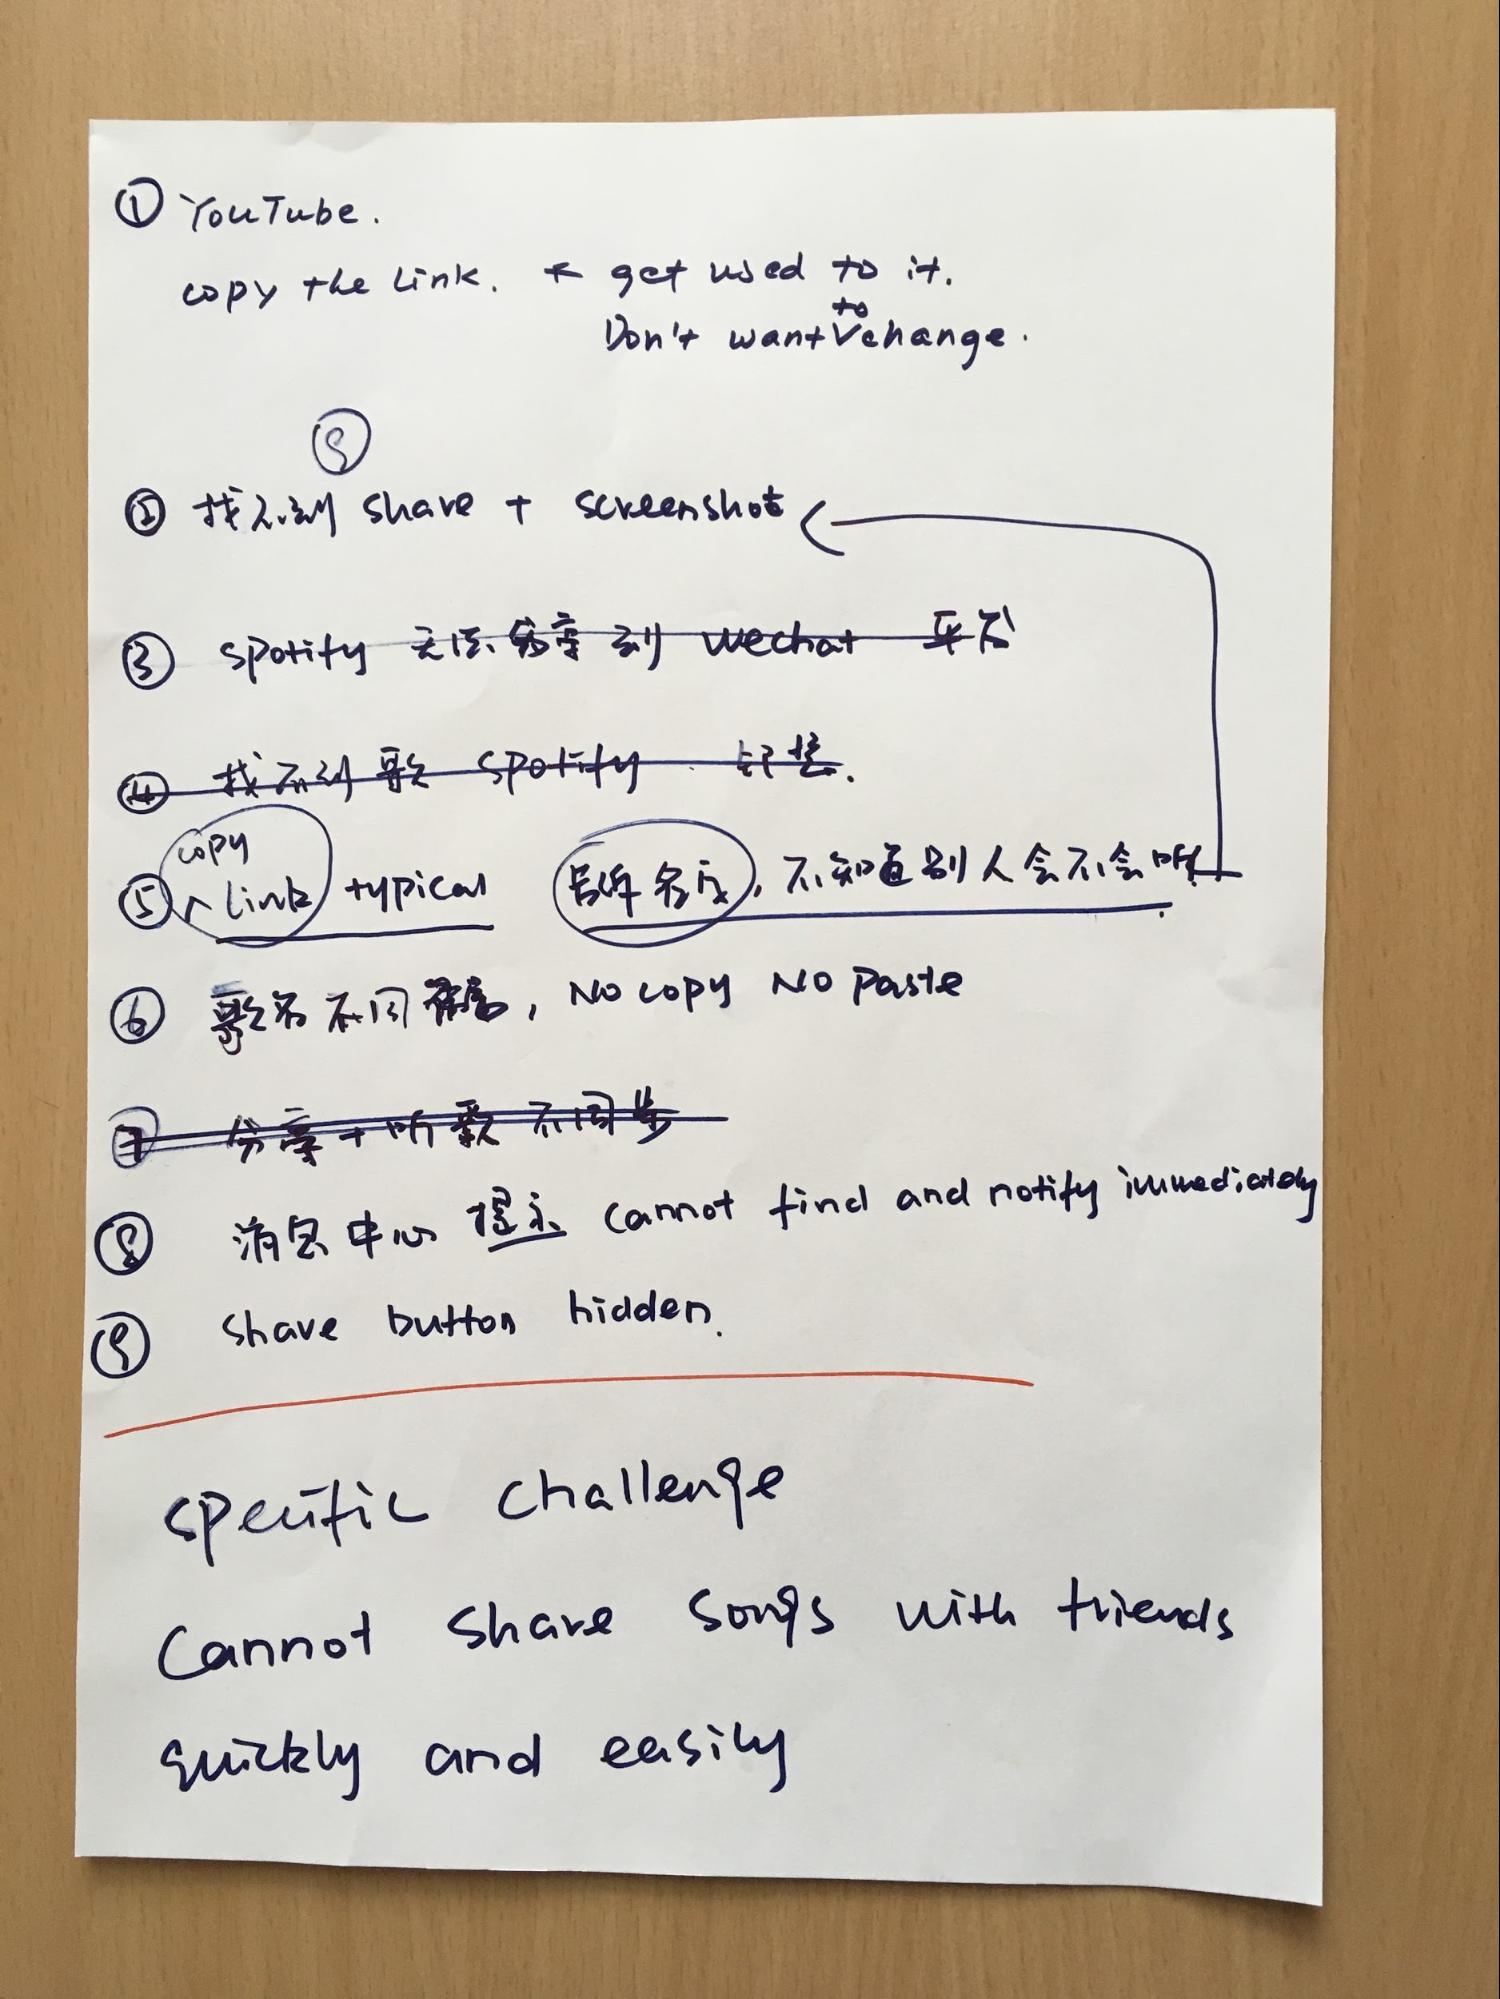 ① YouTube.
copy the link. ← get used to it.
Don't want to change.
⑨
② 找不到 share + screenshot
③ spotify 无法分享到 wechat 平台
④ 找不到歌 spotify
copy
⑤ link typical 告诉名字, 不知道别人会不会听
⑥ 歌名不同语言, No copy No paste
⑦ 分享+听歌不同步
⑧ 消息中心 提示 cannot find and notify immediately
⑨ share button hidden.
specific challenge
Cannot share songs with friends
quickly and easily